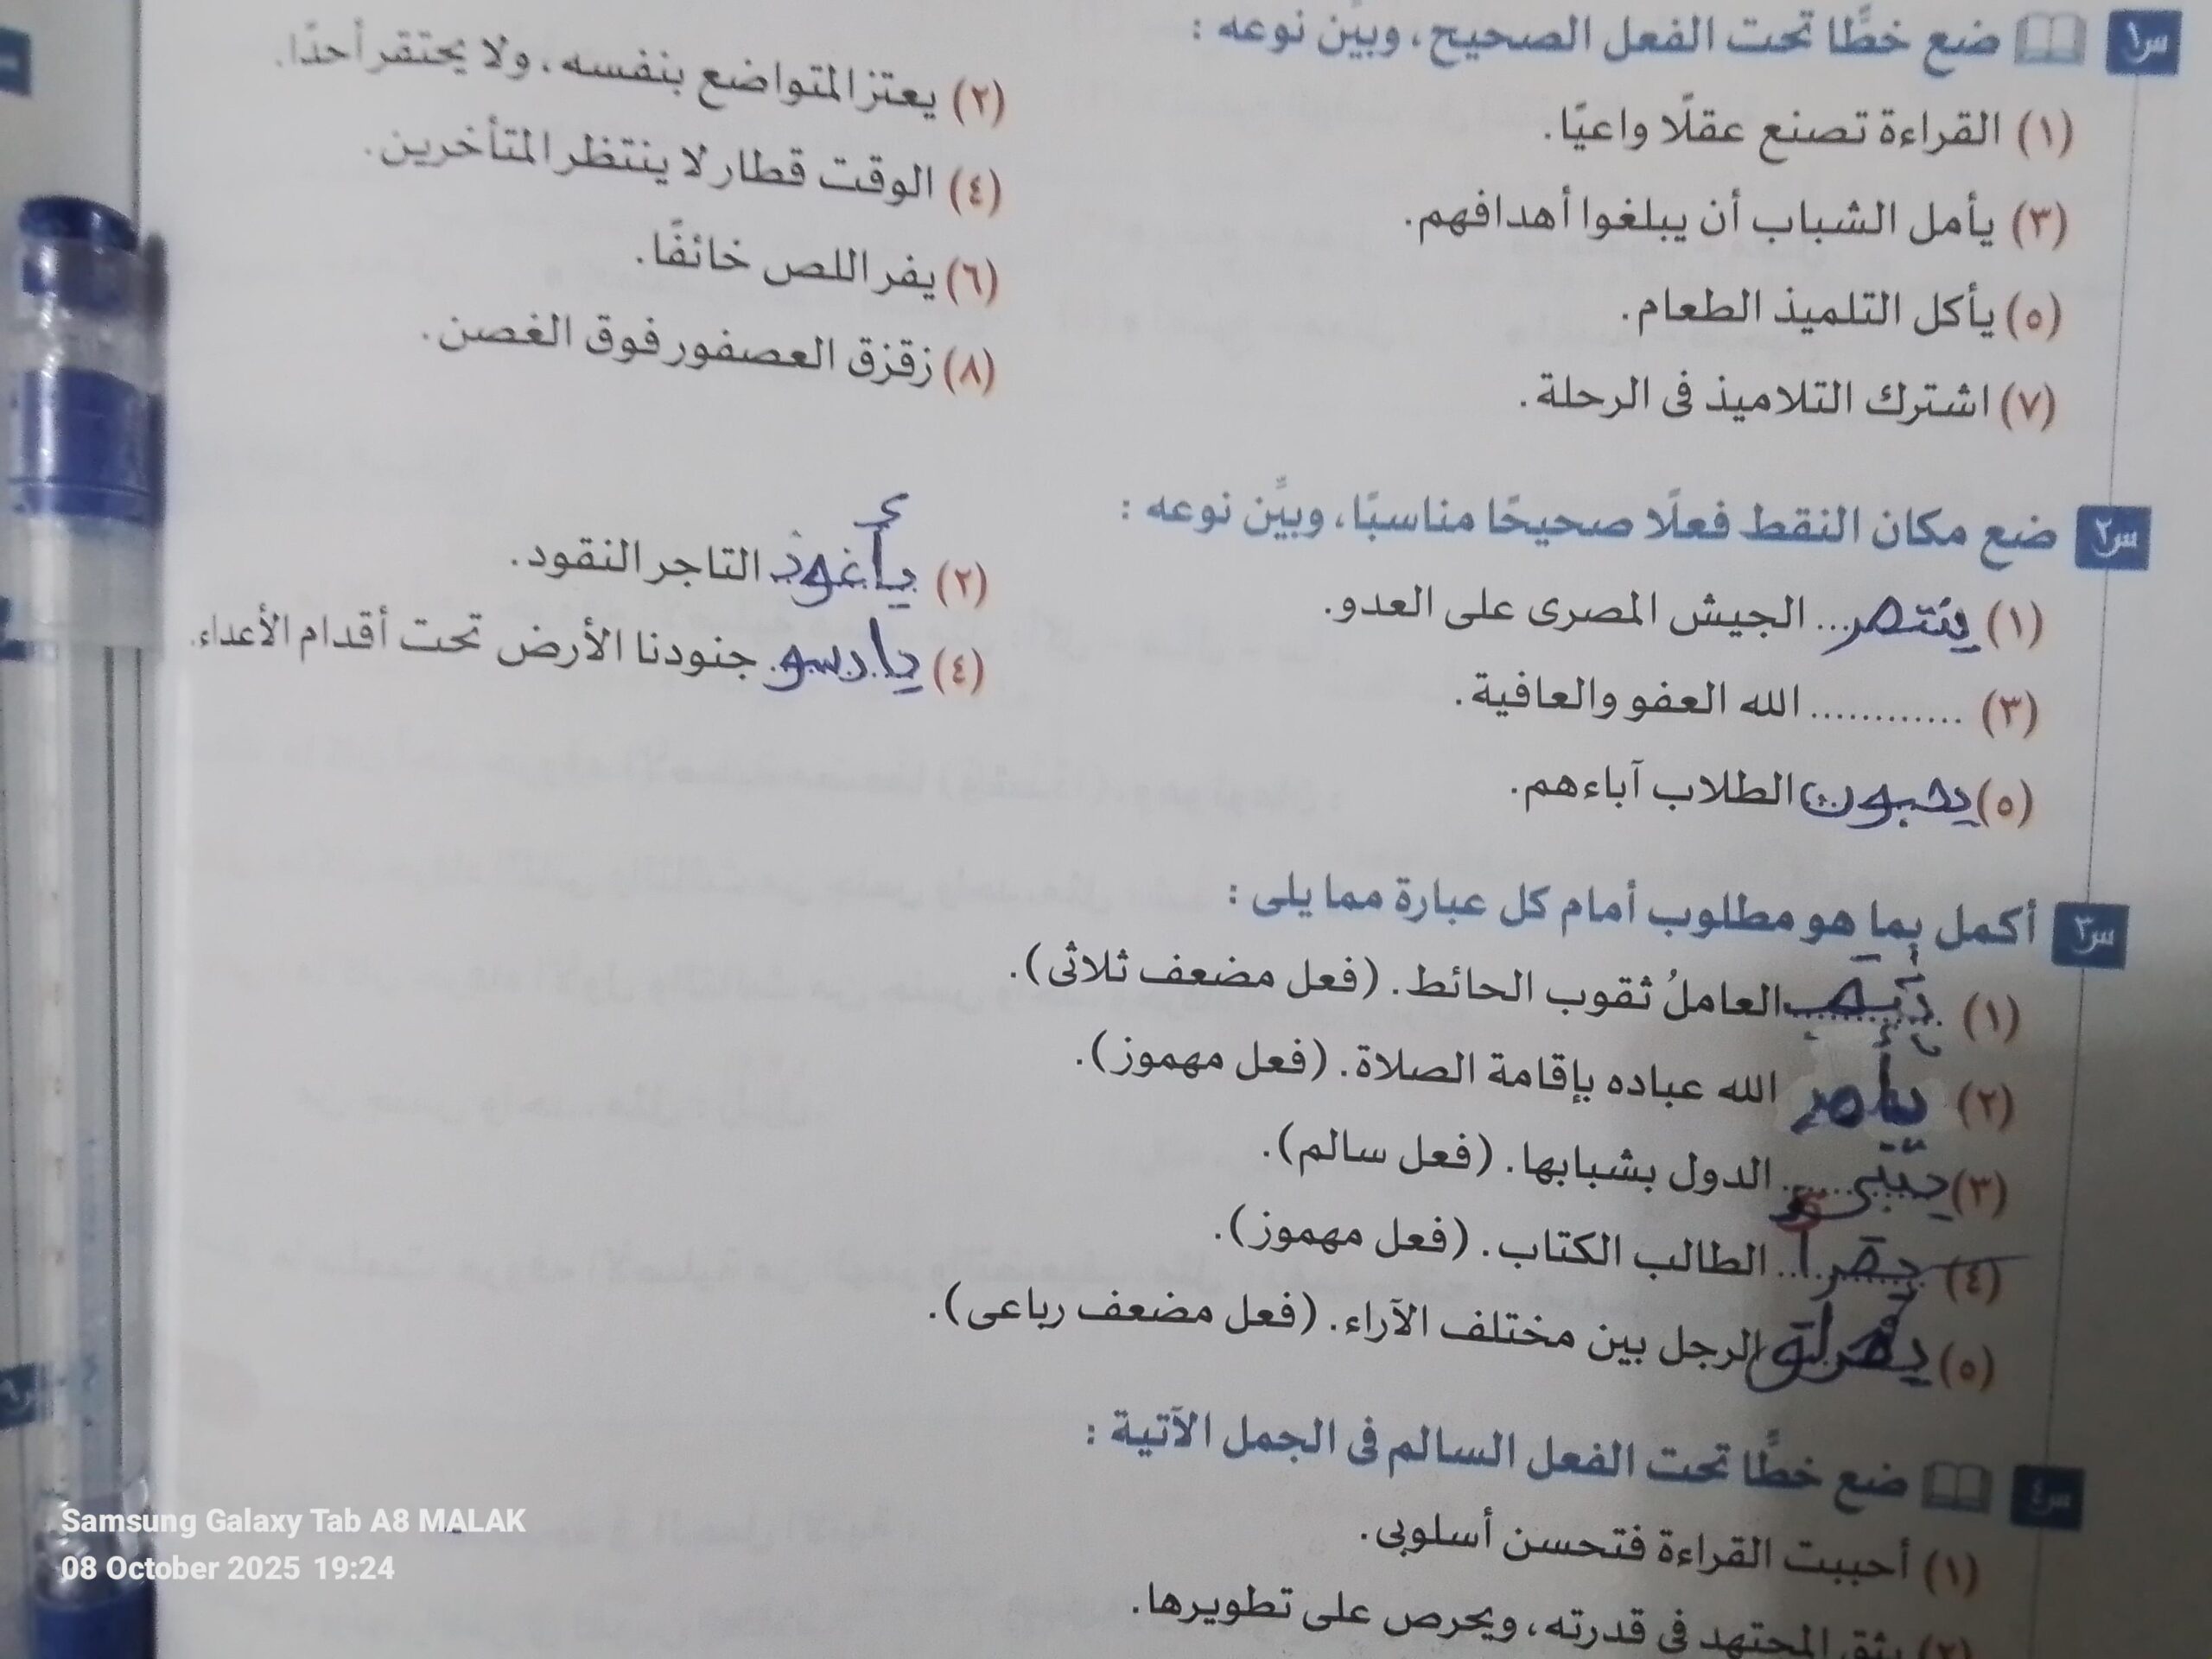 س١ ضع خطًّا تحت الفعل الصحيح، وبيِّن نوعه :
(١) القراءة تصنع عقلًا واعيًا.
(٢) يعتز المتواضع بنفسه، ولا يحتقر أحدًا.
(٣) يأمل الشباب أن يبلغوا أهدافهم.
(٤) الوقت قطار لا ينتظر المتأخرين.
(٥) يأكل التلميذ الطعام.
(٦) يفر اللص خائفًا.
(٧) اشترك التلاميذ فى الرحلة.
(٨) زقزق العصفور فوق الغصن.
س٢ ضع مكان النقط فعلًا صحيحًا مناسبًا، وبيِّن نوعه :
(١) ينتصر... الجيش المصرى على العدو.
(٢) التاجر النقود.
(٣) ............ الله العفو والعافية.
(٤) جنودنا الأرض تحت أقدام الأعداء.
(٥) يحبون الطلاب آباءهم.
س٣ أكمل بما هو مطلوب أمام كل عبارة مما يلى :
(١) العاملُ ثقوب الحائط. (فعل مضعف ثلاثى).
(٢) يأمر الله عباده بإقامة الصلاة. (فعل مهموز).
(٣) الدول بشبابها. (فعل سالم).
(٤) يقرأ.. الطالب الكتاب. (فعل مهموز).
(٥) الرجل بين مختلف الآراء. (فعل مضعف رباعى).
س٤ ضع خطًّا تحت الفعل السالم فى الجمل الآتية :
(١) أحببت القراءة فتحسن أسلوبى.
(٢) يثق المجتهد فى قدرته، ويحرص على تطويرها.
Samsung Galaxy Tab A8 MALAK
08 October 2025 19:24